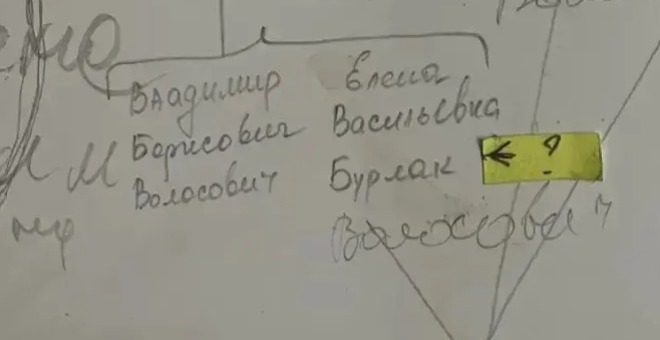 Владимир
Борисович
Волосович
Елена
Васильевна
Бурлак
← ?
Волосович